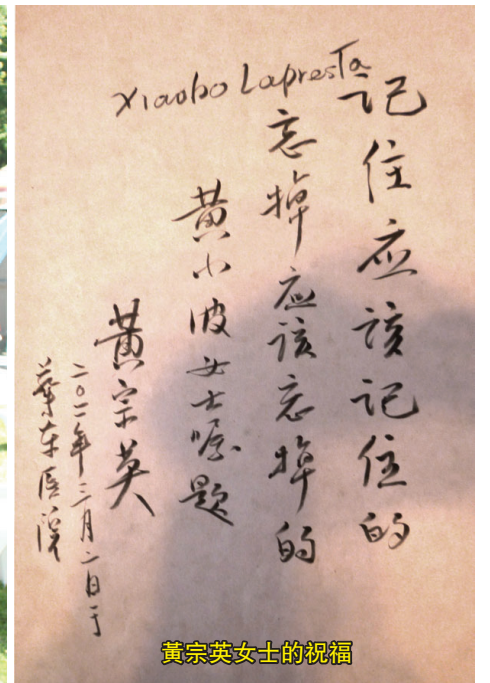 Xiaobo LapresTa
记住应该记住的
忘掉应该忘掉的
黄小波女士嘱题
黄宗英
二〇一一年三月二日于
华东医院
黃宗英女士的祝福